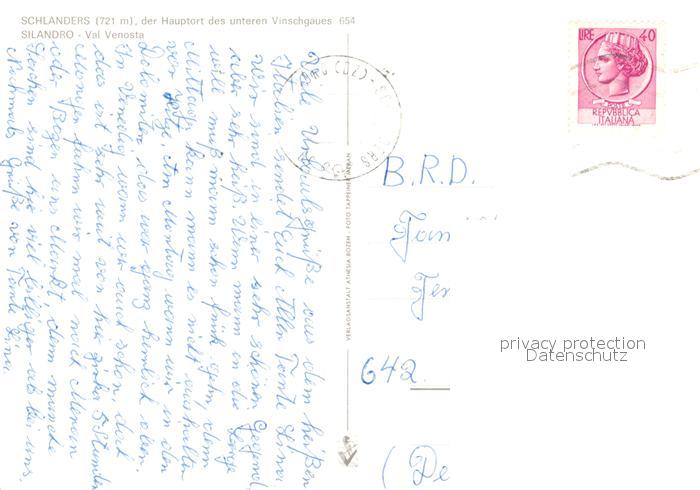 SCHLANDERS (721 m), der Hauptort des unteren Vinschgaues 654
SILANDRO - Val Venosta
Viele Urlaubsgrüße aus dem heißen
Italien sendet Euch Allen Tante
Wir sind in einer sehr schönen Gegend,
aber sehr heiß. Wenn man in die Berge
will muß man schon früh gehn, denn
Mittags kann man es nicht aushalten
vor Am Montag waren wir in den
Dolomiten das war ganz herrlich oben.
In Venedig waren wir auch schon, doch
das ist sehr weit von hier 5 Stunden
Morgen fahren wir mal nach Meran
oder Bozen zum Markt, denn manche
Sachen sind hier viel billiger als bei uns.
Nochmals Grüße von Tante
VERLAGSANSTALT ATHESIA BOZEN - FOTO TAPPEINER MERAN
LIRE 40
POSTE
REPVBBLICA
ITALIANA
B.R.D.
Fam
642
(De
privacy protection
Datenschutz